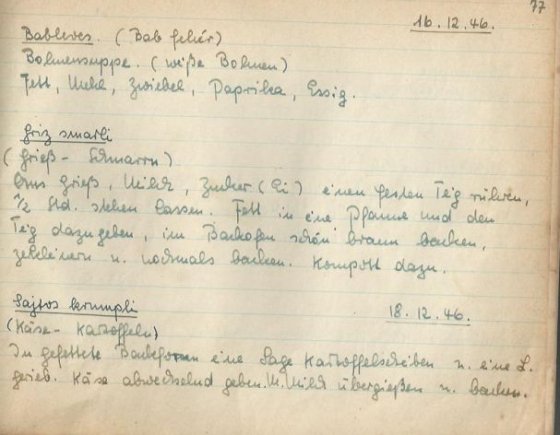 77
16.12.46.
Bableves. (Bab fehér)
Bohnensuppe. (weiße Bohnen)
Fett, Mehl, Zwiebel, Paprika, Essig.
Griz smarli
(Grieß-Schmarrn)
Aus Grieß, Milch, Zucker (Ei) einen festen Teig rühren,
1/2 Std. stehen lassen. Fett in eine Pfanne und den
Teig dazugeben, im Backofen schön braun backen,
zerkleinern u. nochmals backen. Kompott dazu.
Sajtos krumpli
18.12.46.
(Käse-Kartoffeln)
In gefettete Backform eine Lage Kartoffelscheiben u. eine L.
gerieb. Käse abwechselnd geben. M. Milch übergießen u. backen.